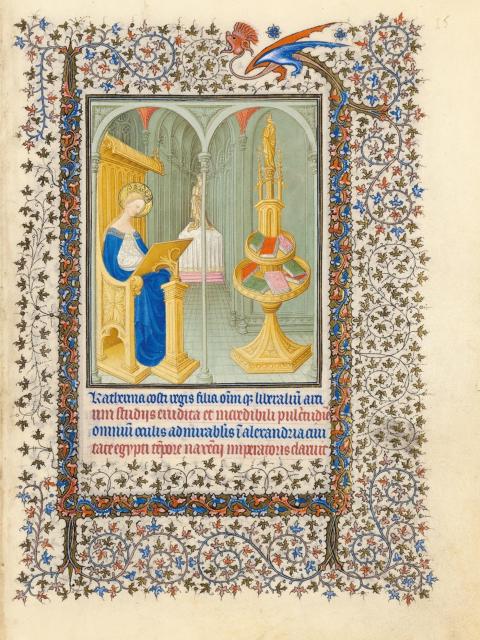 15
Katherina costi regis filia oīm qȝ liberaliū arti
um studijs erudita et incredibili pulcritudīe
omniū oculis admirabilis ī alexandria ciui
tate egypti tēpore maxēcii imperatoris claruit